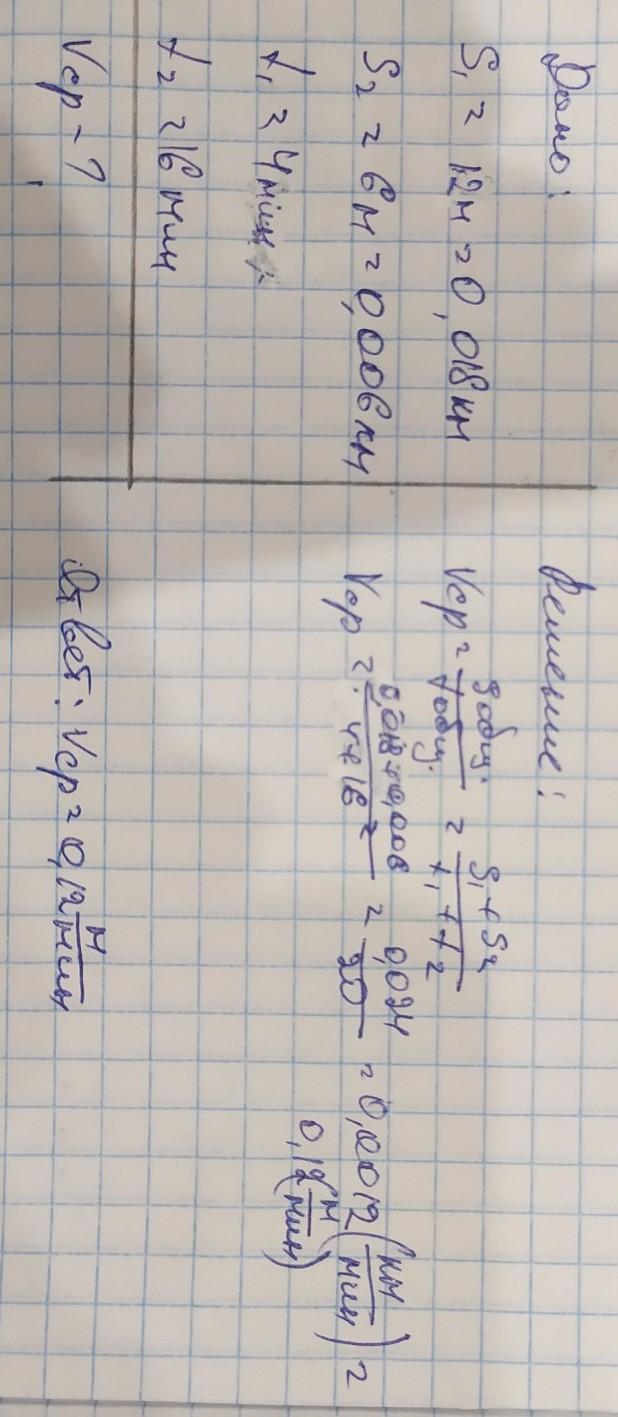 Дано:
S₁ = 12м = 0,018 км
S₂ = 6м = 0,006 км
t₁ = 4 мин
t₂ = 16 мин
Vср - ?
Решение:
Vср = Sобщ. / tобщ. = S₁ + S₂ / t₁ + t₂
Vср = 0,018 + 0,006 / 4 + 16 = 0,024 / 20 = 0,0012 (км/мин) =
0,12 (м/мин)
Ответ: Vср = 0,12 м/мин